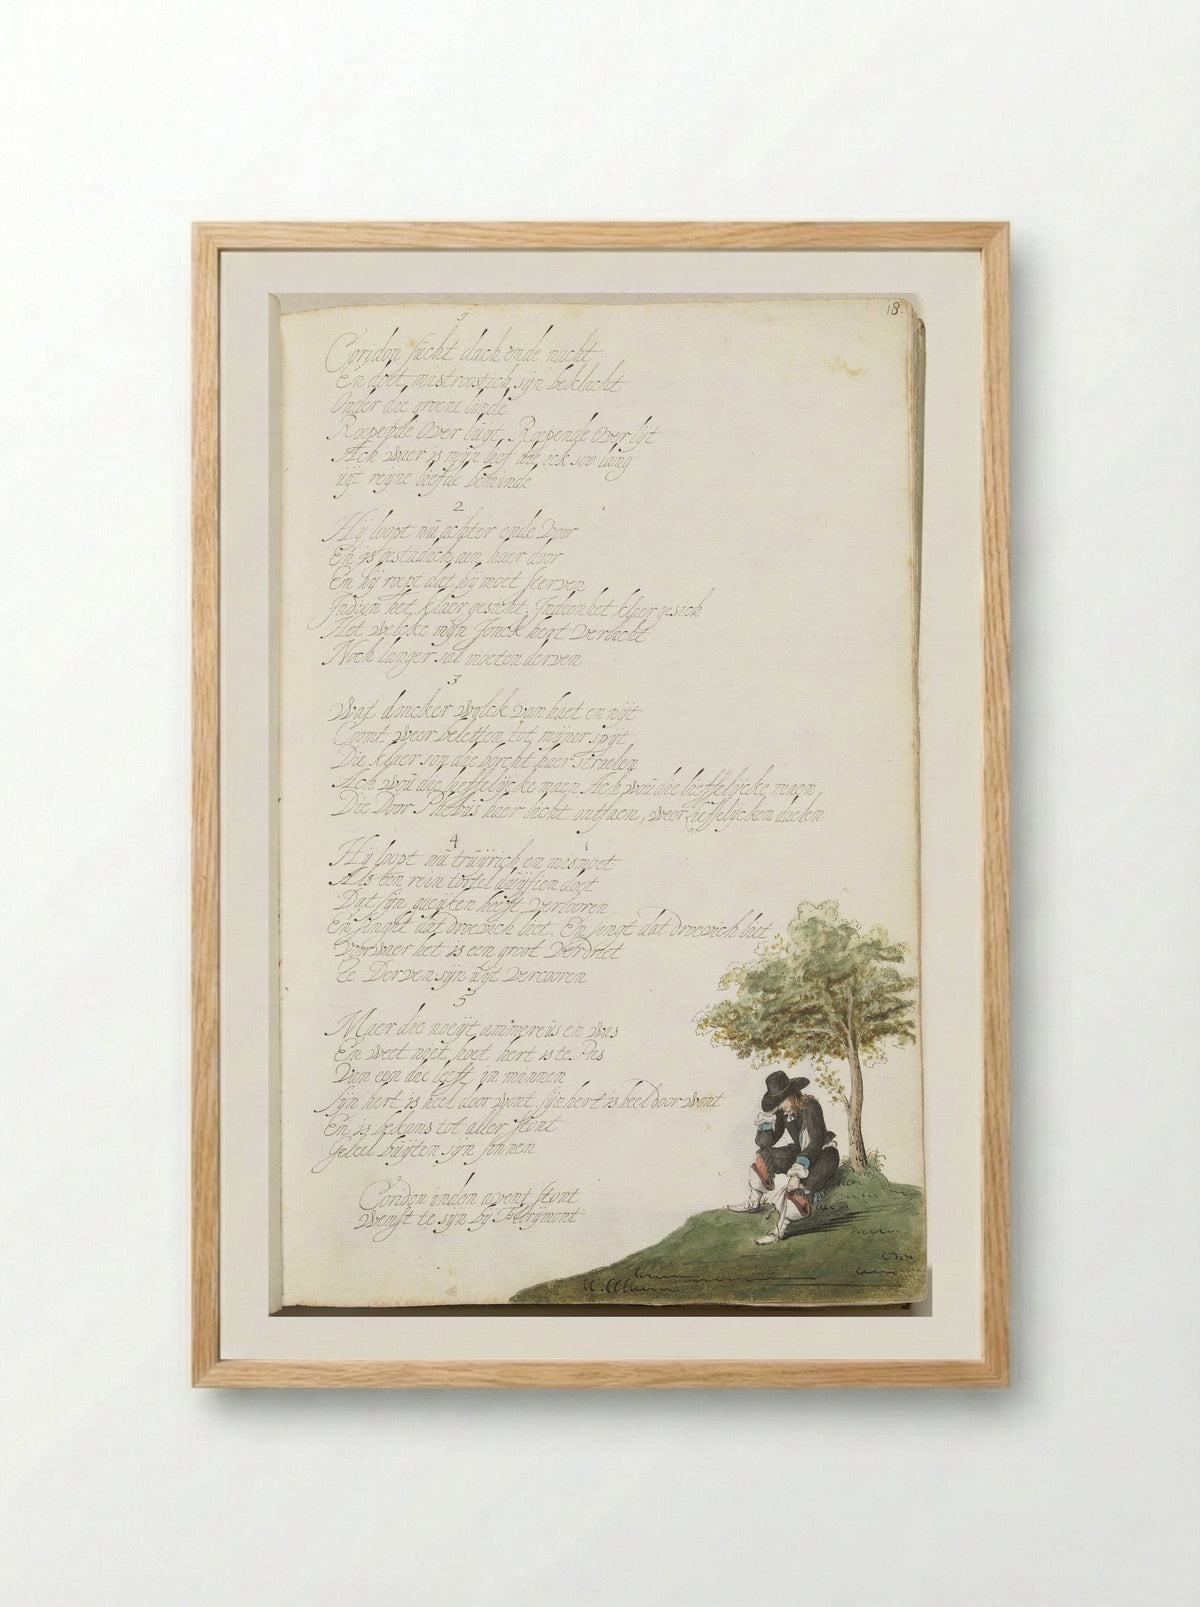 18.
1
Coridon sucht dach ende nacht
En doet mistroostich sijn beklacht
Onder die groene linde
Roepende over luijt, Roepende over lijt
Ach waer is mijn lief die ick soo lang
uijt reijne liefde beminde
2
Hij loopt nu achter ende voor
En is gestadich aen haer door
En hij roept dat hij moet sterven
Indien het klaer gesicht, Indien het klaer gesich
Het welcke mijn Jonck hert verlacht
Noch langer sal moeten derven
3
Wat doncker wolck van haet en nijt
Coomt weer beletten tot mijner spijt
Die klaer son die borcht haer straelen
Ach wou die lieffelijcke maen Ach wou die lieffelijcke maen,
Die Door Phebus haer licht ontfaen, weer lieffelijcken daelen
4
Hij loopt nu truijrich en mismoet
Als een rein tortel duijfien doet
Dat sijn gaeijken heeft verlooren
En singht dat droevich liet. En singt dat droevich liet
Voorwaer het is een groot verdriet
te Derven sijn uijt vercooren
5
Maer die noeijt ammereus en was
En weet niet hoet hert is te Pas
Van een die leeft in minnen
Sijn hert is heel door wont sijn hert is heel door wont
En is bekans tot aller stont
Geheel buijten sijn sinnen
Coridon inden avent stont
Wenst te sijn bij Florijmont